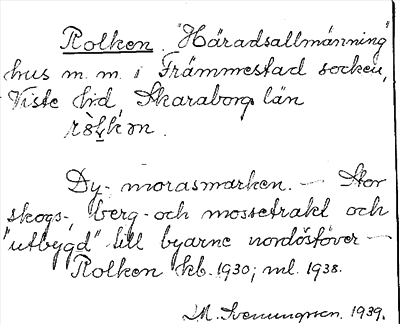 Rolken. "Häradsallmänning"
hus m.m. i Främmestad socken,
Viste hd, Skaraborg län

Dy- morasmarken. — Stor
skogs-, berg- och mossetrakt och
"utbygd" till byarne nordöstöver —
Rolken kb. 1930; ml. 1938.
M. Svenungsson. 1939.